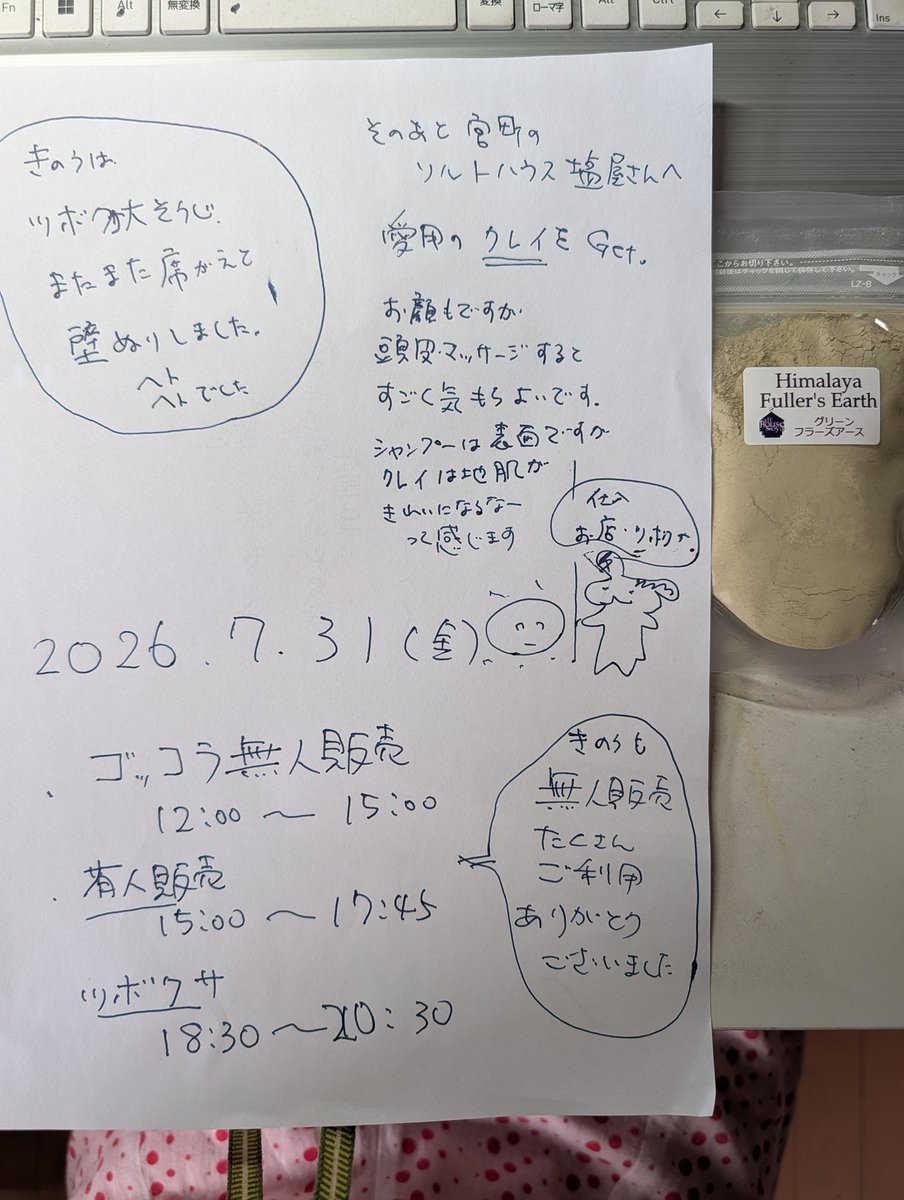 Fn
Alt
無変換
変換
ローマ字
Alt
Ctrl
←
↓
→
Ins
きのうは
ツボクサ大そうじ
またまた席がえて
壁ぬりしました。
ヘト
ヘトでした
そのあと宮町の
ソルトハウス塩屋さんへ
愛用のクレイをGet.
お顔もですが
頭皮・マッサージすると
すごく気もちよいです.
シャンプーは表面ですが
クレイは地肌が
きれいになるなー
って感じます
仕入
お店・ツボクサ.
2026.7.31(金)
・ゴッコラ無人販売
12:00〜15:00
・有人販売
15:00〜17:45
ツボクサ
18:30〜20:30
きのうも
無人販売
たくさん
ご利用
ありがとう
ございました
ここからお切り下さい。
チャック
LZ-8
Himalaya
Fuller's Earth
グリーン
フラーズアース